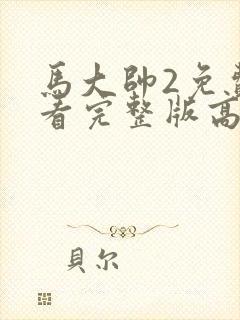 馬大帥2免費
看完整版高
貝尔